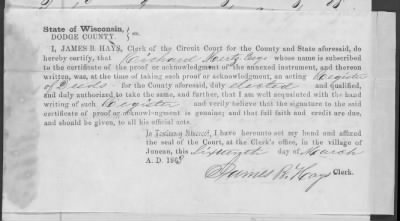 State of Wisconsin,
DODGE COUNTY. } ss.
I, JAMES B. HAYS, Clerk of the Circuit Court for the County and State aforesaid, do
hereby certify, that Richard Mertz Esqr whose name is subscribed
to the certificate of the proof or acknowledgment of the annexed instrument, and thereon
written, was, at the time of taking such proof or acknowledgment, an acting Register
of Deeds for the County aforesaid, duly elected and qualified,
and duly authorized to take the same, and further, that I am well acquainted with the hand
writing of such Register and verily believe that the signature to the said
certificate of proof or acknowledgment is genuine; and that full faith and credit are due,
and should be given, to all his official acts.
In Testimony Whereof, I have hereunto set my hand and affixed
the seal of the Court, at the Clerk's office, in the village of
Juneau, this Sixteenth day of March
A. D. 186
James B. Hays Clerk.